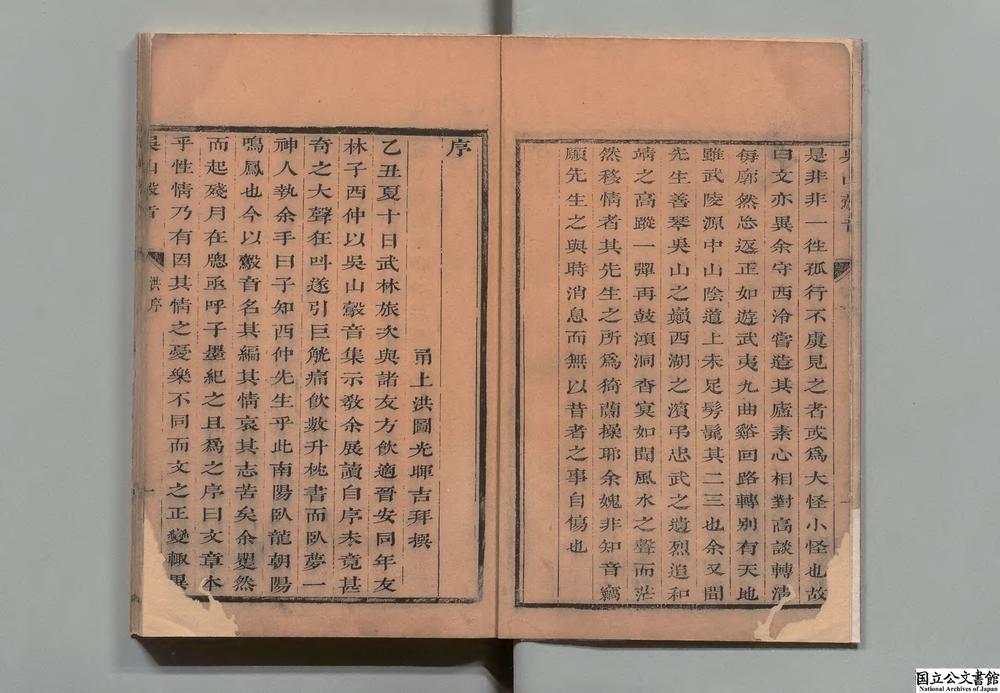 是非非一徃孤行不虞見之者或爲大怪小怪也故
曰文亦異余守西泠嘗造其廬素心相對高談轉淸
每廓然忘返正如遊武夷九曲谿回路轉别有天地
雖武陵源中山陰道上未足髣髴其二三也余又聞
先生善琴吳山之巔西湖之濱弔忠武之遺烈追和
靖之高蹤一彈再鼓澒洞杳冥如聞風水之聲而茫
然移情者其先生之所爲猗蘭操耶余媿非知音竊
願先生之與時消息而無以昔者之事自傷也
序
甬上洪圖光暉吉拜撰
乙丑夏十日武林旅次與諸友方飲適晉安同年友
林子西仲以吳山鷇音集示敎余展讀自序未竟甚
奇之大聲狂叫遂引巨觥痛飲數升枕書而臥夢一
神人執余手曰子知西仲先生乎此南陽臥龍朝陽
鳴鳳也今以鷇音名其編其情哀其志苦矣余矍然
而起殘月在牕亟呼子墨紀之且爲之序曰文章本
乎性情乃有因其情之憂樂不同而文之正變輙異
吳山鷇音
洪序
一
国立公文書館
National Archives of Japan